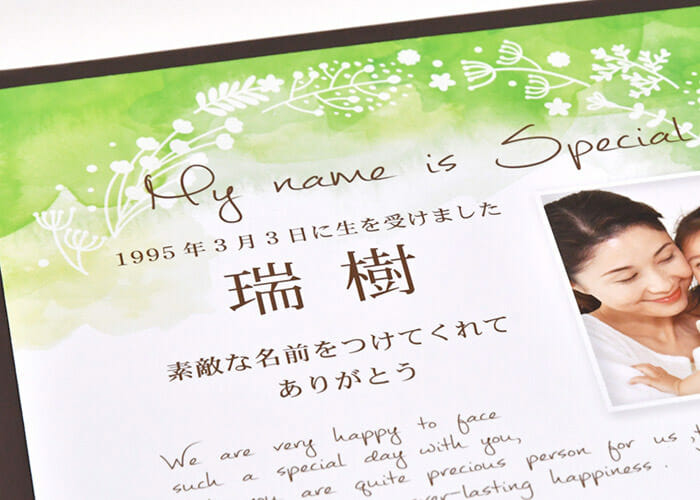 My name is Special
1995年3月3日に生を受けました
瑞樹
素敵な名前をつけてくれて
ありがとう
We are very happy to face
such a special day with you,
you are quite precious person for us,
ever-lasting happiness.